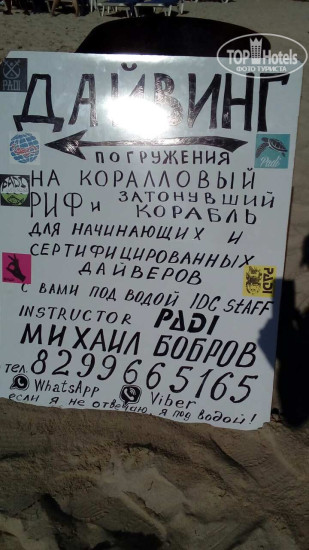 TOPHotels
ФОТО ТУРИСТА
PADI
ДАЙВИНГ
Padi
ПОГРУЖЕНИЯ
НА КОРАЛЛОВЫЙ
РИФ и ЗАТОНУВШИЙ
КОРАБЛЬ
ДЛЯ НАЧИНАЮЩИХ И
СЕРТИФИЦИРОВАННЫХ
ДАЙВЕРОВ
PADI
С ВАМИ ПОД ВОДОЙ IDC STAFF
INSTRUCTOR PADI
МИХАИЛ БОБРОВ
тел. 8299665165
WhatsApp Viber
если я не отвечаю, я под водой!